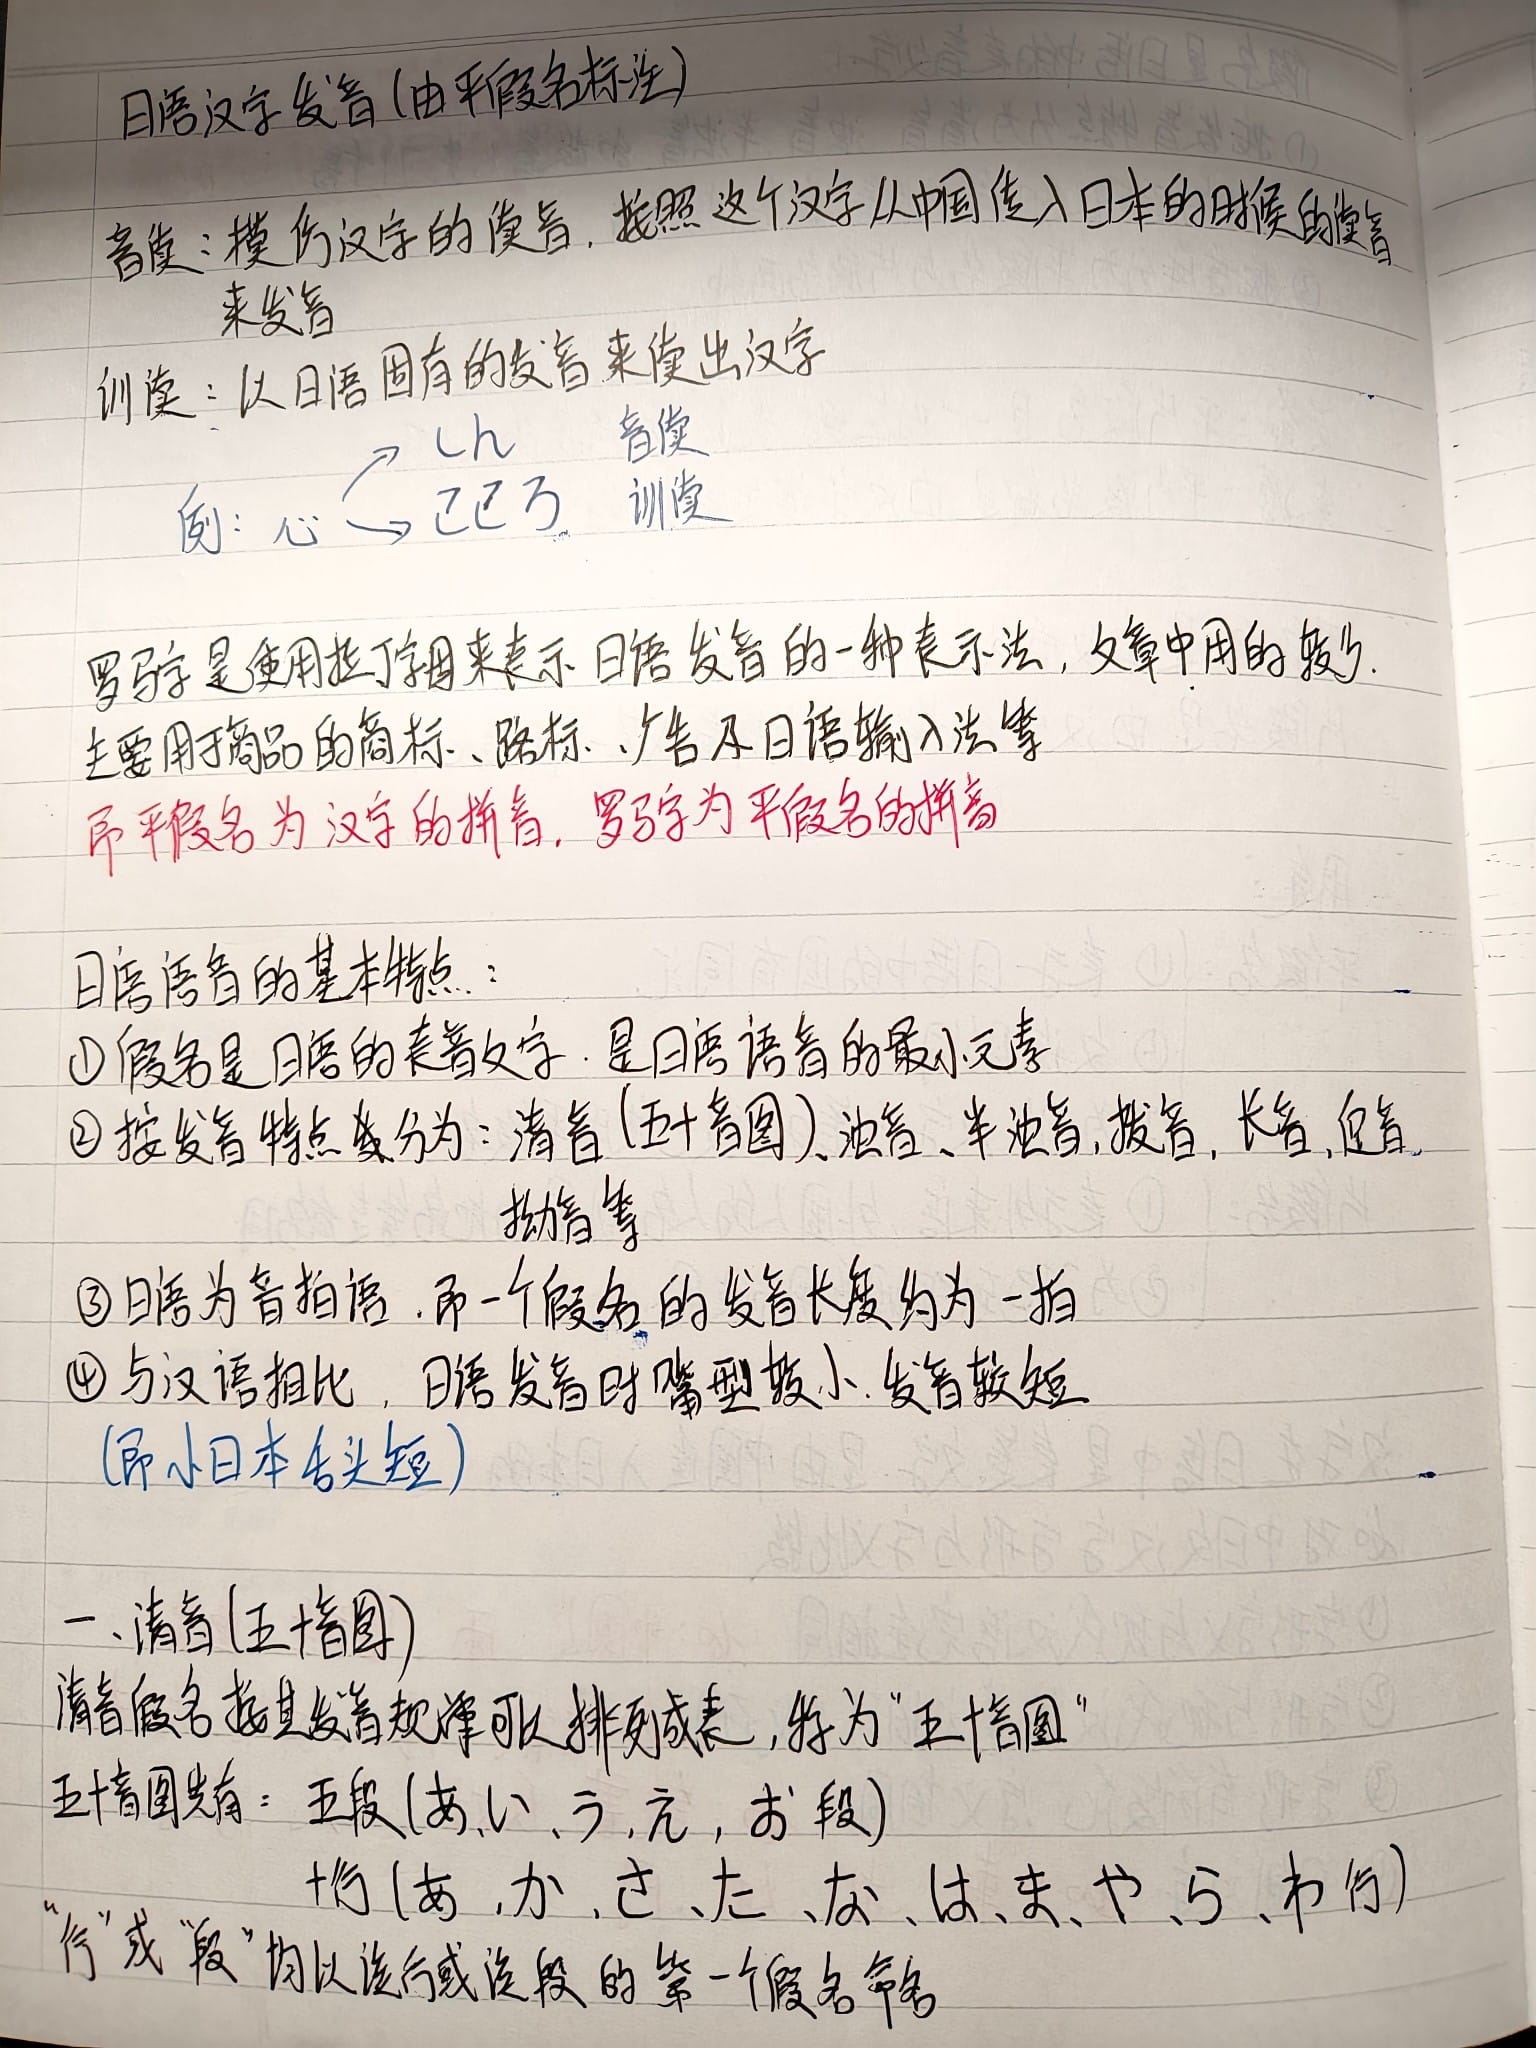 日语汉字发音(由平假名标注)
音读：模仿汉字的读音，按照这个汉字从中国传入日本的时候的读音
来发音
训读：以日语固有的发音来读出汉字
しん 音读
例：心 こころ 训读
罗马字是使用拉丁字母来表示日语发音的一种表示法，文章中用的较少.
主要用于商品的商标、路标、广告及日语输入法等
即平假名为汉字的拼音，罗马字为平假名的拼音
日语语音的基本特点：
①假名是日语的表音文字.是日语语音的最小元素
②按发音特点分为：清音(五十音图)、浊音、半浊音,拨音,长音、促音、
拗音等
③日语为音拍语.即一个假名的发音长度约为一拍
④与汉语相比，日语发音时嘴型较小.发音较短
(即小日本舌头短)
一、清音(五十音图)
清音假名按其发音规律可以排列成表,称为"五十音图"
五十音图共有：五段(あ、い、う,え,お段)
十行(あ,か、さ、た、な、は、ま、や、ら、わ行)
"行"或"段"均以该行或该段的第一个假名命名